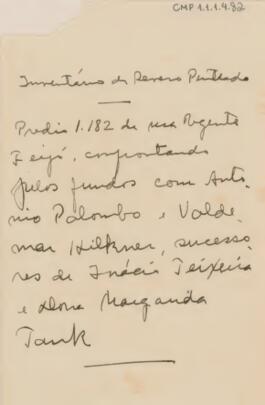 CMP 1.1.1.4.82
Inventário de Severo Penteado
Predio 1.182 da rua Regente
Feijó, confrontando
pelos fundos com Antô
nio Palombo e Valde
mar Hilkner, sucesso
res de Inácio Teixeira
e Dona Margarida
Tank